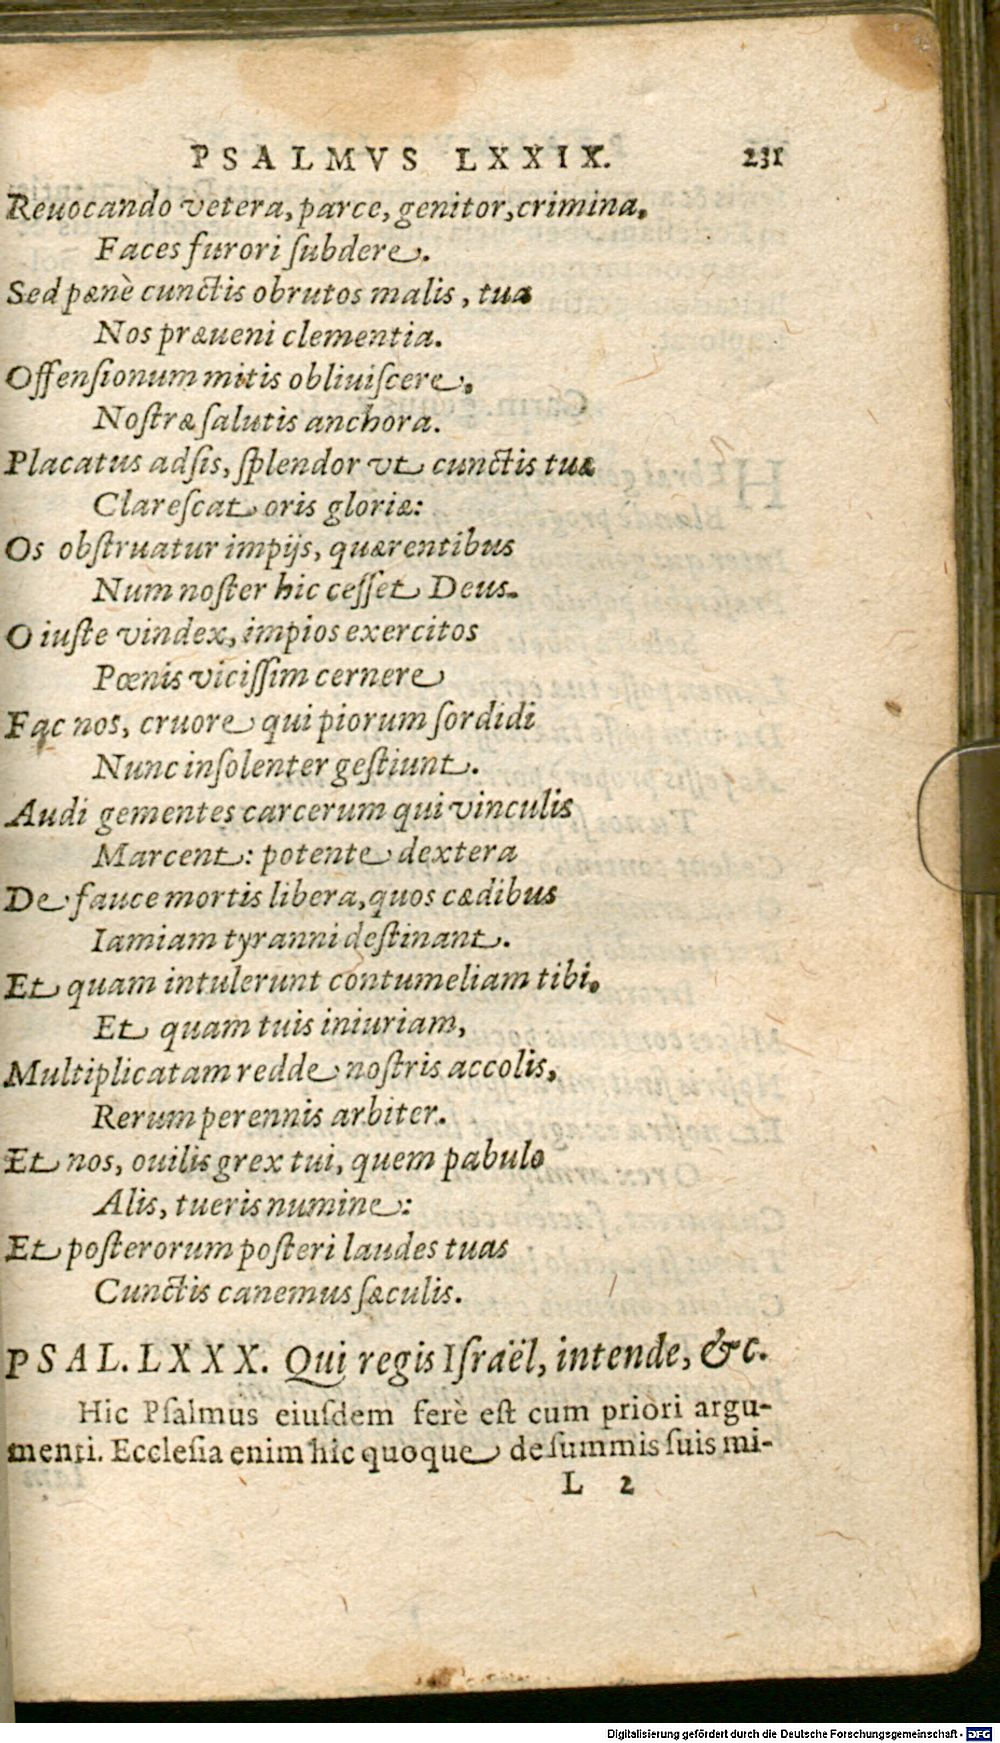 PSALMVS LXXIX. 231
Reuocando vetera, parce, genitor, crimina,
Faces furori ſubdere.
Sed pænè cunctis obrutos malis, tua
Nos præueni clementia.
Offenſionum mitis obliuiſcere,
Noſtræ ſalutis anchora.
Placatus adſis, ſplendor vt cunctis tuæ
Clareſcat oris gloriæ:
Os obſtruatur impijs, quærentibus
Num noſter hic ceſſet Deus.
O iuſte vindex, impios exercitos
Pœnis viciſſim cernere
Fac nos, cruore qui piorum ſordidi
Nunc inſolenter geſtiunt.
Audi gementes carcerum qui vinculis
Marcent: potente dextera
De fauce mortis libera, quos cædibus
Iamiam tyranni deſtinant.
Et quam intulerunt contumeliam tibi,
Et quam tuis iniuriam,
Multiplicatam redde noſtris accolis,
Rerum perennis arbiter.
Et nos, ouilis grex tui, quem pabulo
Alis, tueris numine:
Et poſterorum poſteri laudes tuas
Cunctis canemus ſæculis.
PSAL. LXXX. Qui regis Iſraël, intende, &c.
Hic Pſalmus eiuſdem ferè eſt cum priori argu-
menti. Eccleſia enim hic quoque de ſummis ſuis mi-
L 2
Digitalisierung gefördert durch die Deutsche Forschungsgemeinschaft - DFG